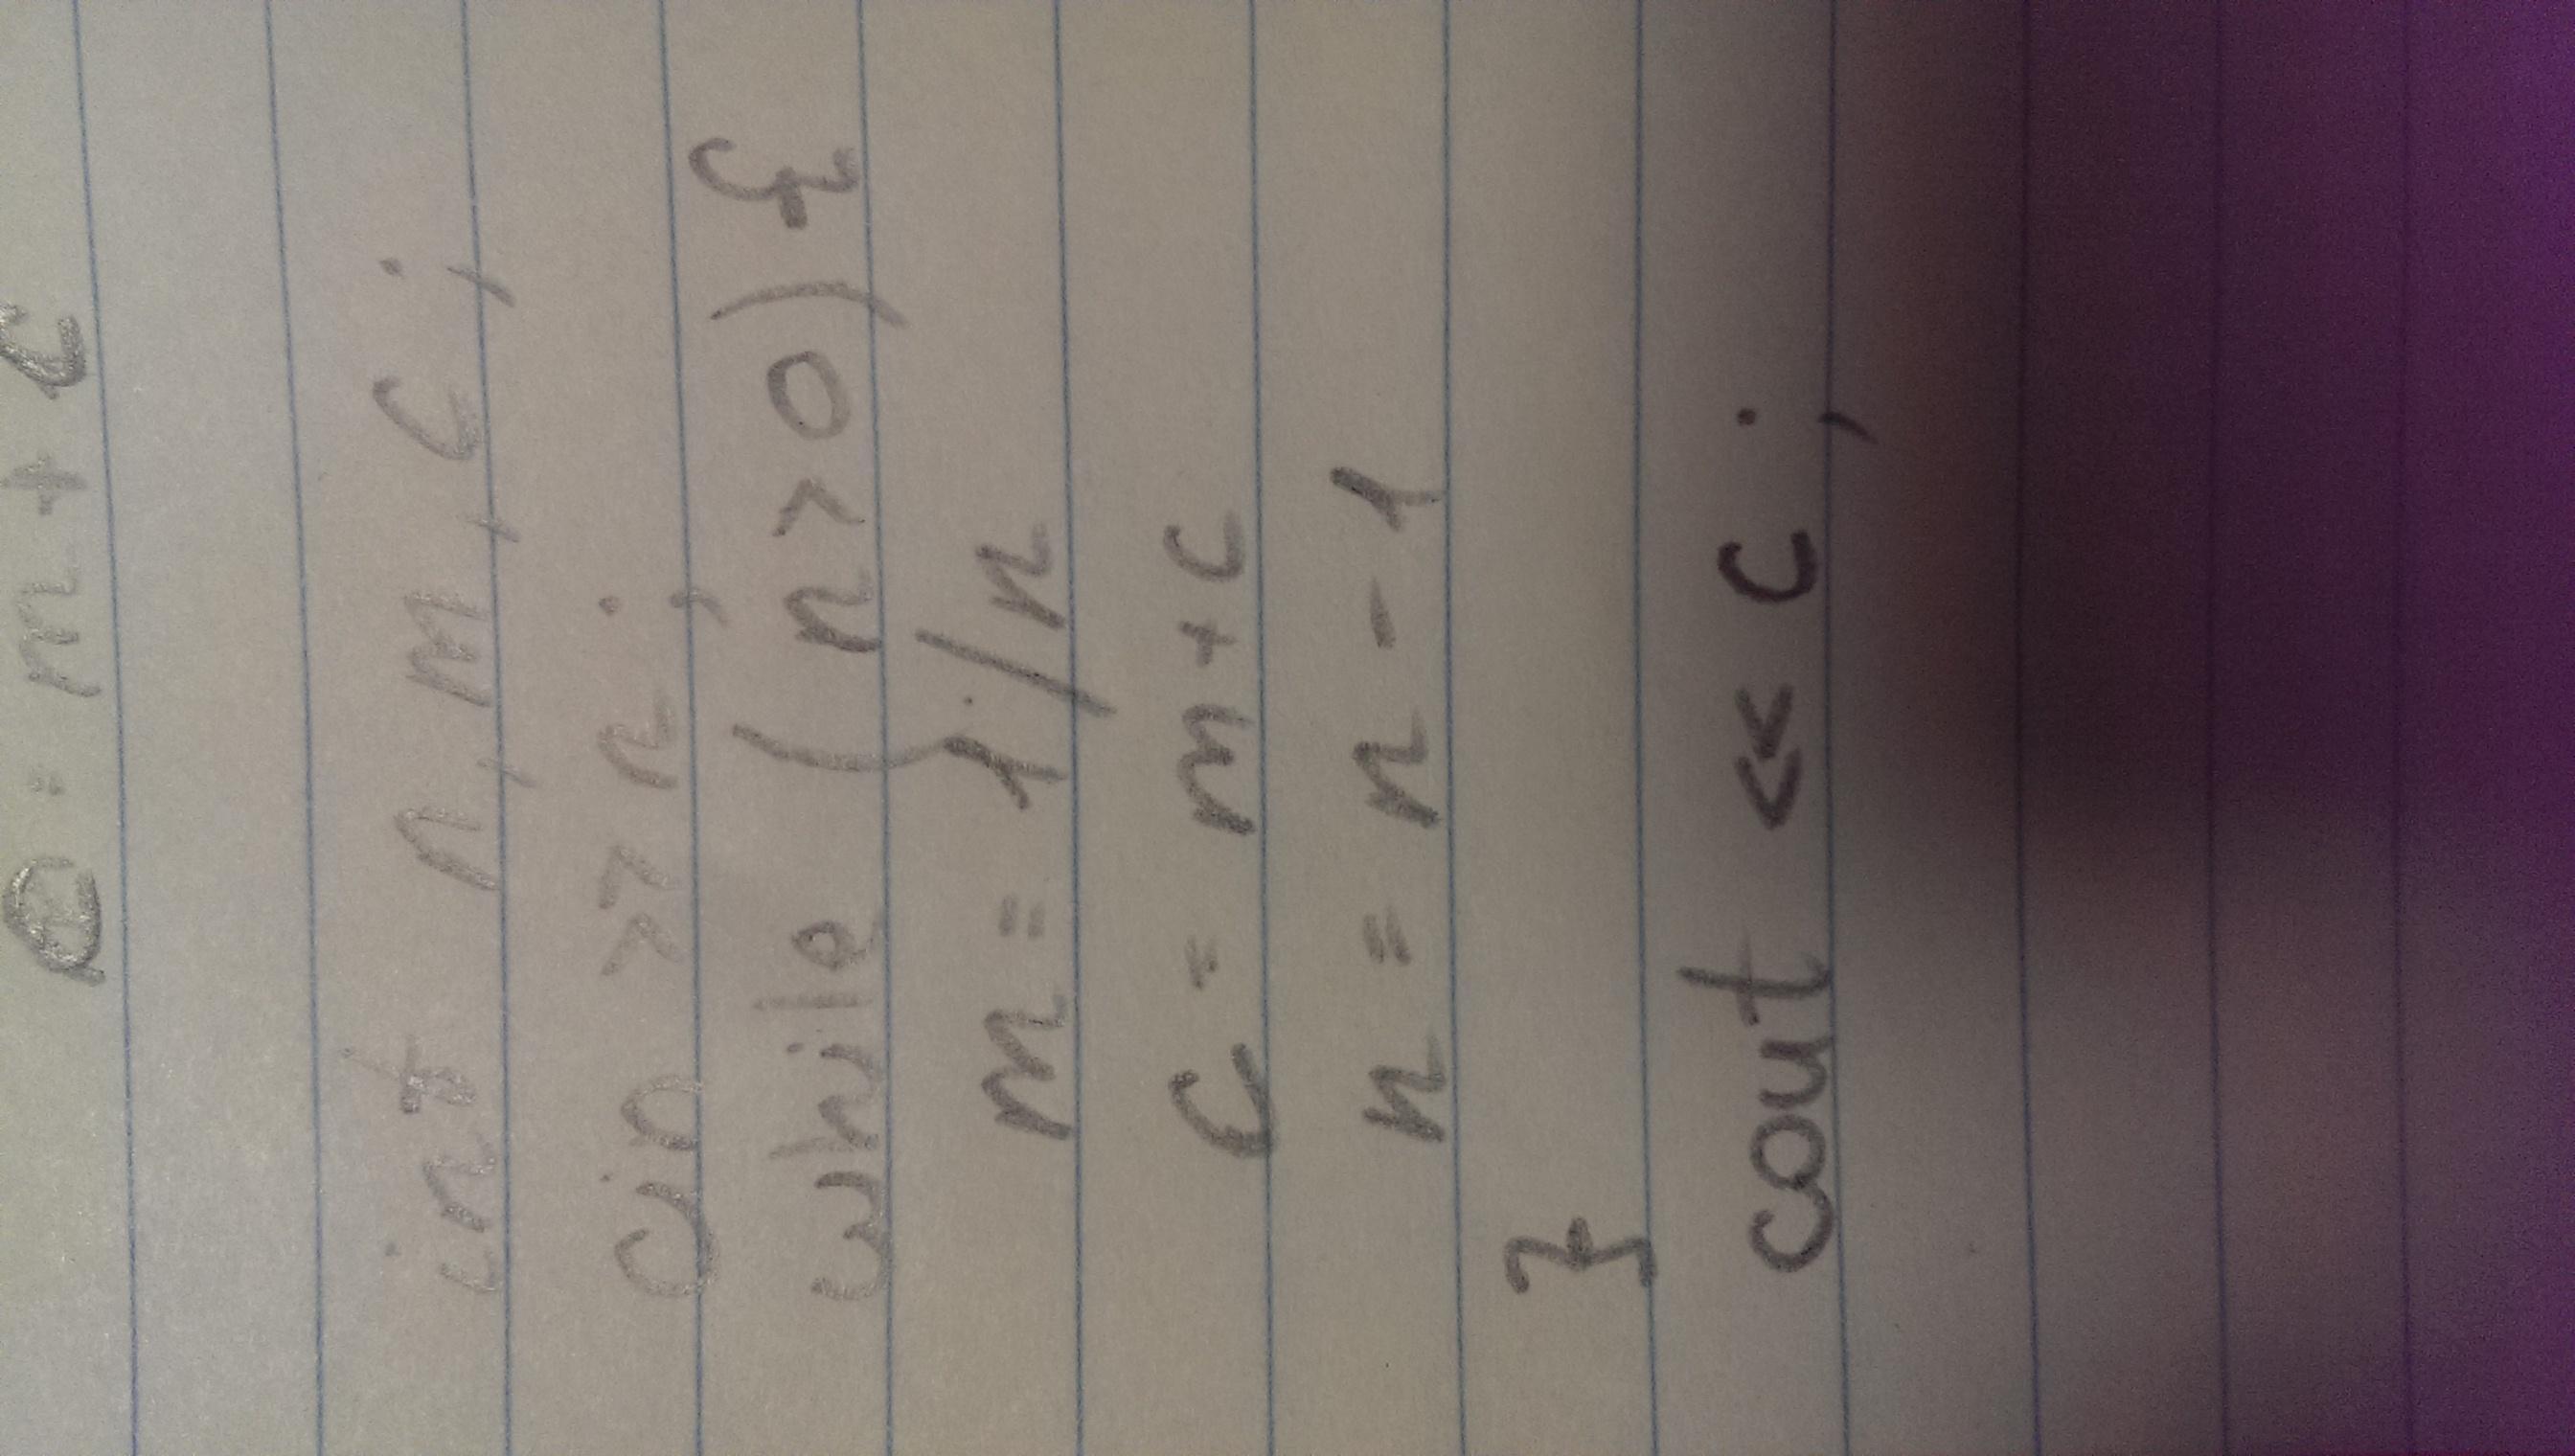 = m + c
int n, m, c ;
cin >> n ;
while ( n > 0 ) {
m = 1./n
c = m + c
n = n - 1
}
cout << c ;